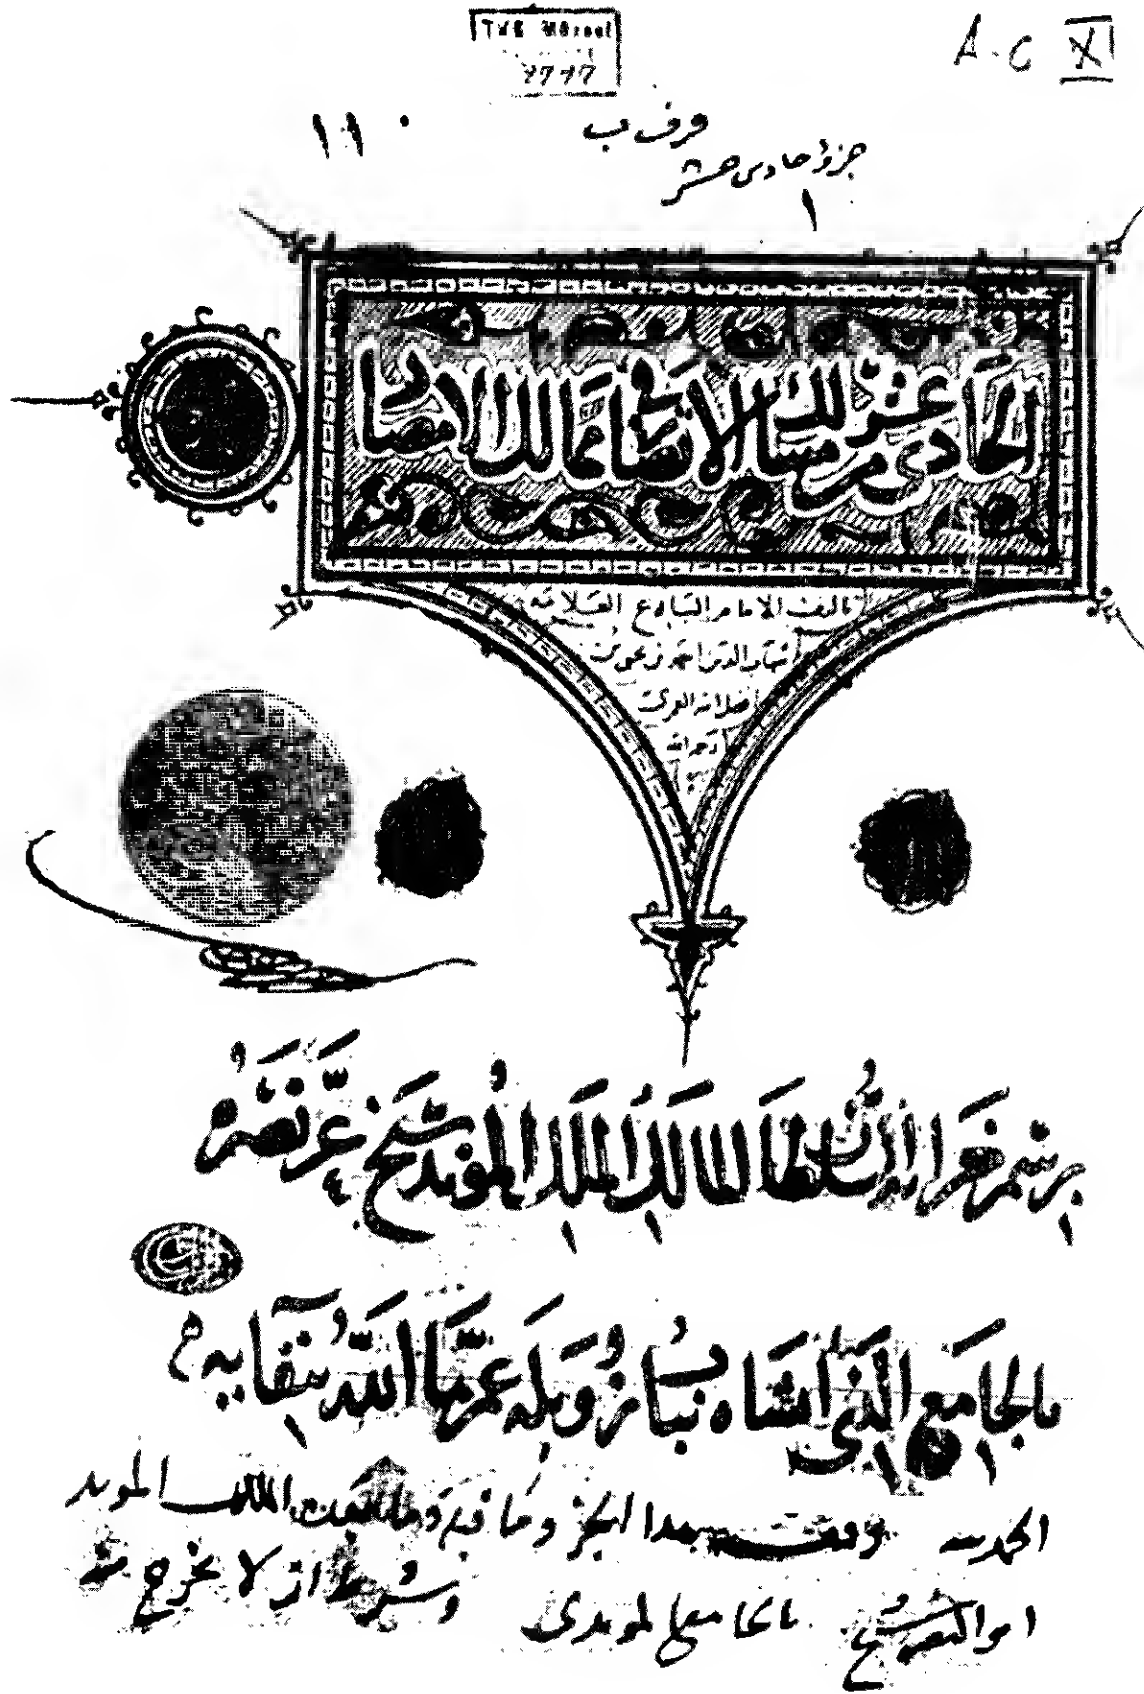 A-C XI
١١٠
جزؤ حادى عشر
١
الحادى عشر من مسالك الابصار فى ممالك الامصار
تاليف الامام البارع العلامة
شهاب الدين احمد بن يحيى بن
فضل الله العمرى
رحمه الله
برسم خزانة السلطان المالك الملك المؤيد شيخ عز نصره
بالجامع الذى أنشاه بباب زويلة عمرها الله ببقايه
الحمد لله وقف هذا الجزؤ وما قبله وما بعده الملك المويد
ابو النصر شيخ بالجامع المويدى وشرط ان لا يخرج منه